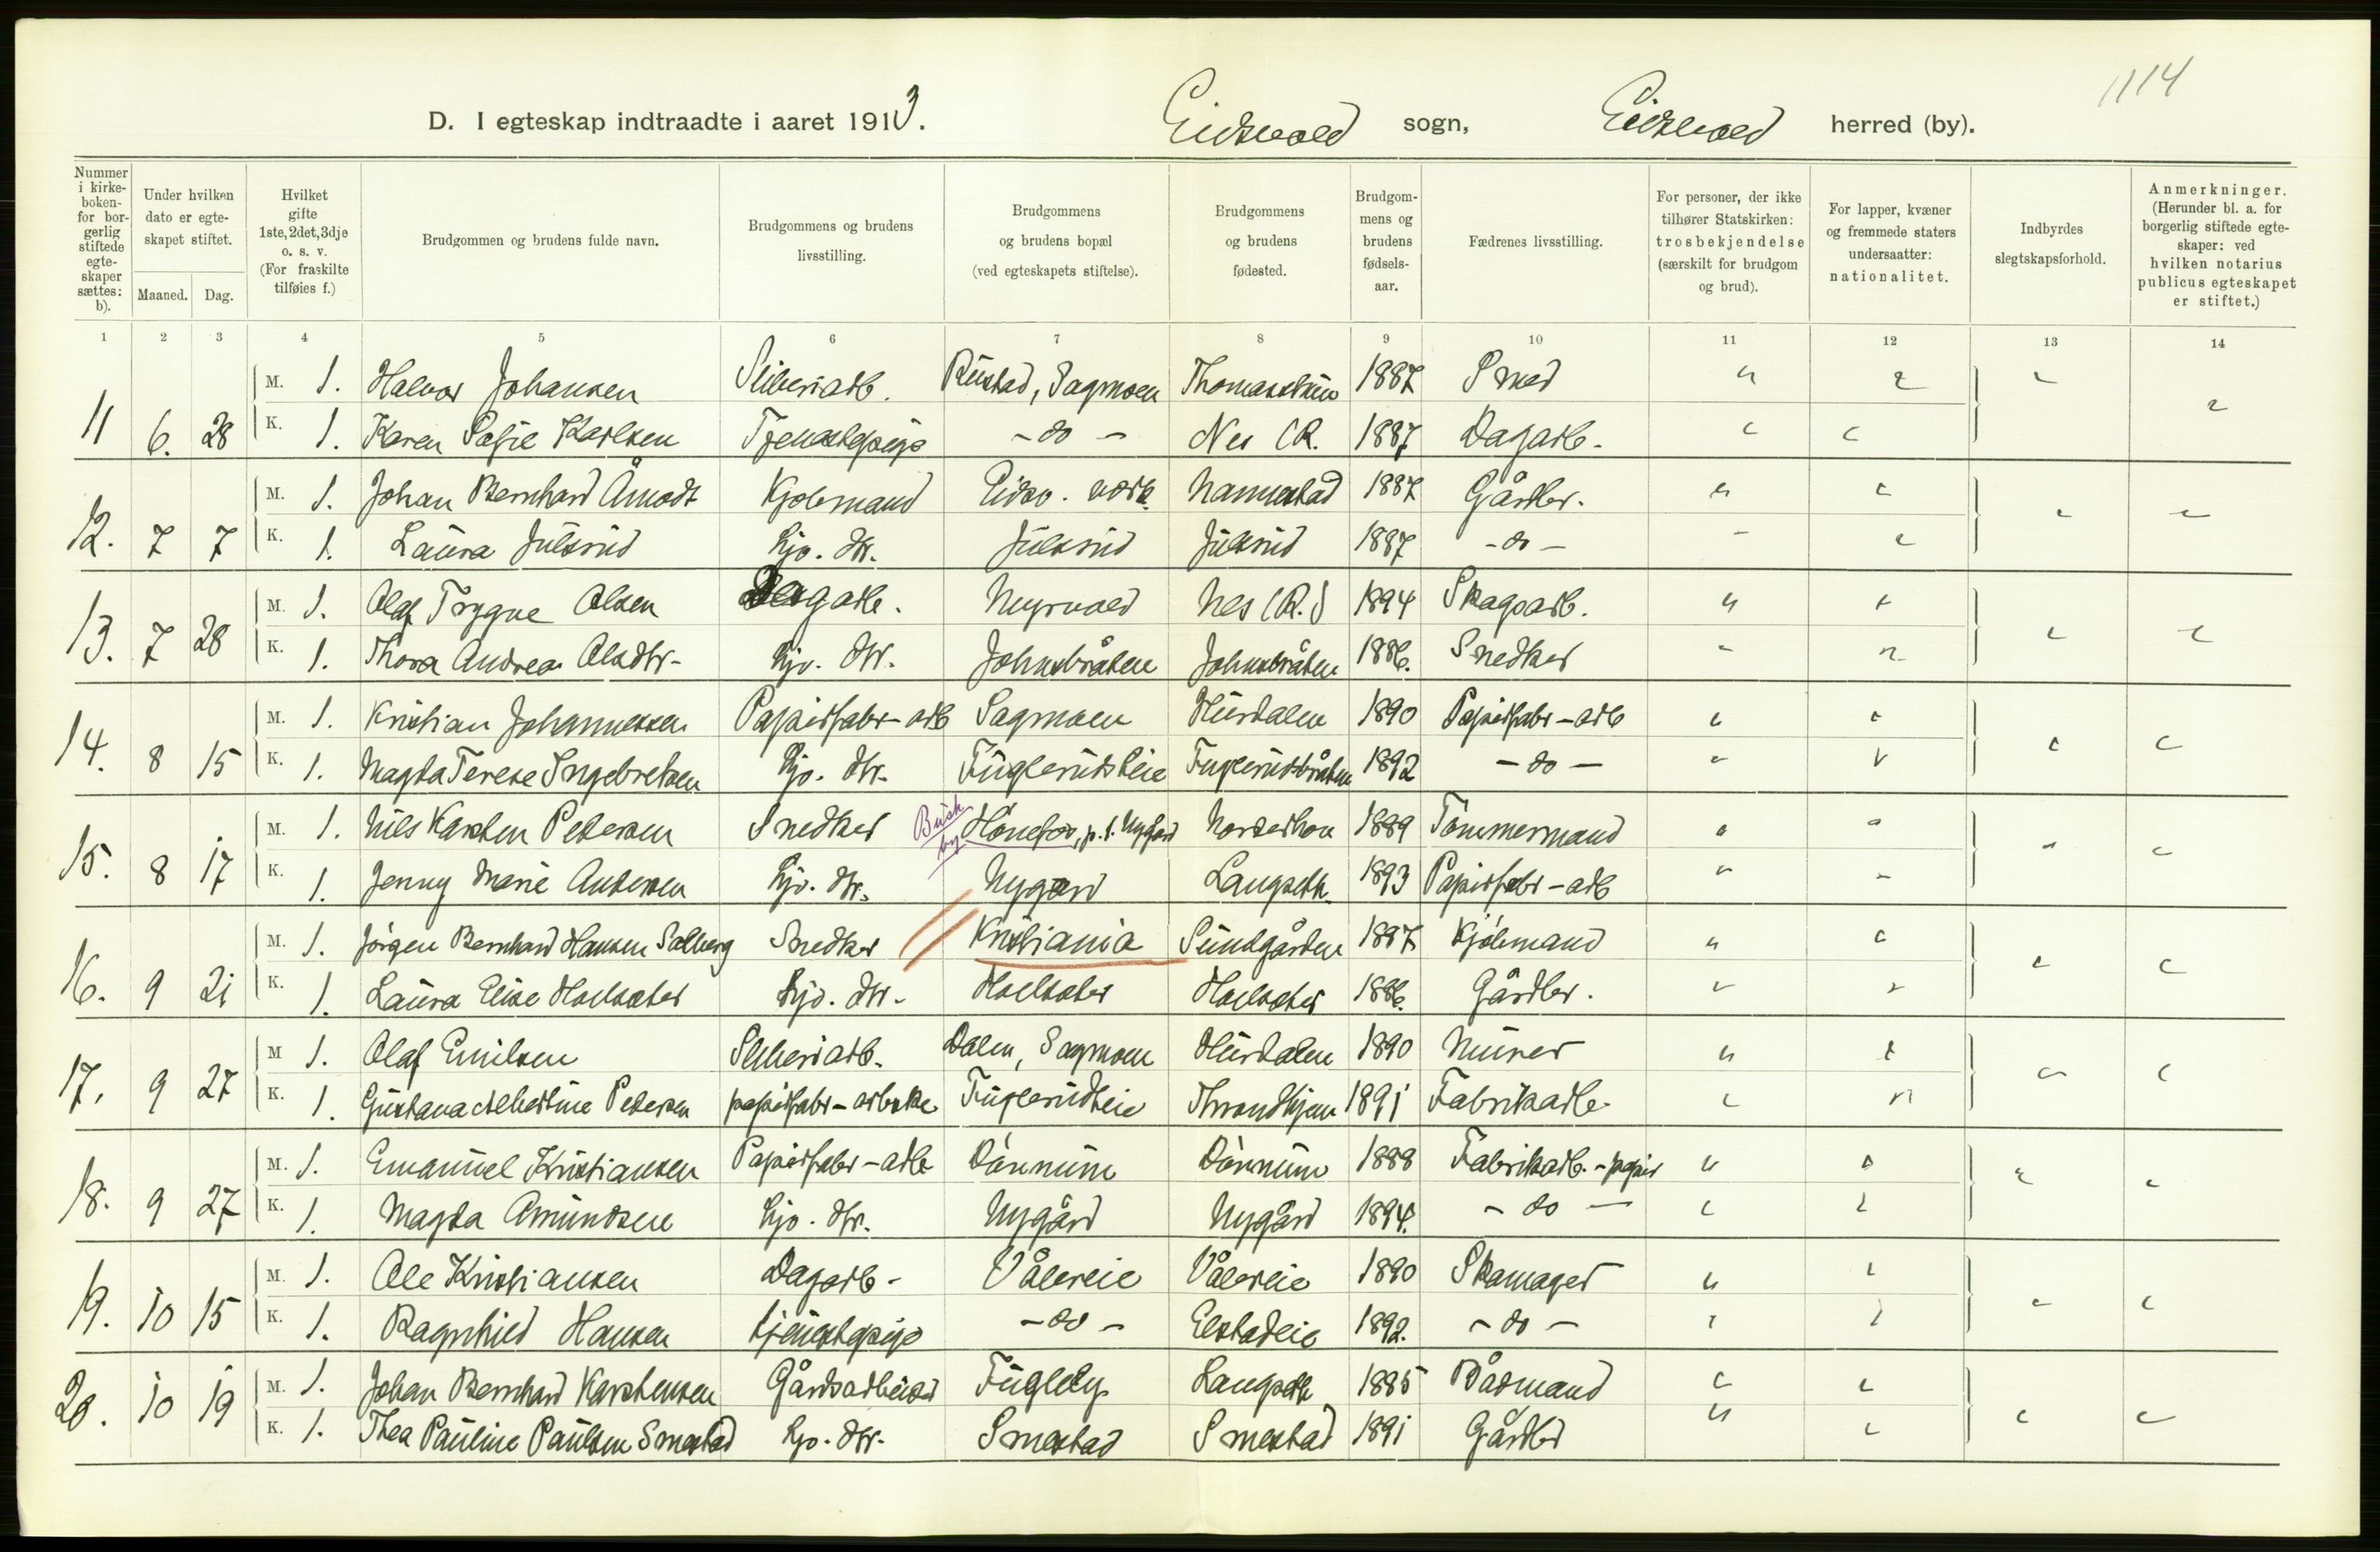 1114
D. I egteskap indtraadte i aaret 1913. Eidsvold sogn, Eidsvold herred (by).
Nummer i kirkeboken- for borgerlig stiftede egteskaper sættes: b).
Under hvilken dato er egteskapet stiftet.
Maaned. Dag.
Hvilket gifte 1ste, 2det, 3dje o. s. v. (For fraskilte tilføies f.)
Brudgommen og brudens fulde navn.
Brudgommens og brudens livsstilling.
Brudgommens og brudens bopæl (ved egteskapets stiftelse).
Brudgommens og brudens fødested.
Brudgommens og brudens fødselsaar.
Fædrenes livsstilling.
For personer, der ikke tilhører Statskirken: trosbekjendelse (særskilt for brudgom og brud).
For lapper, kvæner og fremmede staters undersaatter: nationalitet.
Indbyrdes slegtskapsforhold.
Anmerkninger. (Herunder bl. a. for borgerlig stiftede egteskaper: ved hvilken notarius publicus egteskapet er stiftet.)
1 2 3 4 5 6 7 8 9 10 11 12 13 14
M. 1. Halvor Johansen Sliberiarb. Rustad, Sagmoen 1887 Smed
11 6. 28 K. 1. Karen Sofie Karlsen Tjenestepige - do - Nes (R. 1887 Dagarb.
M. 1. Johan Bernhard Åmodt Kjøbmand Eidsv. verk. Hammerstad 1887 Gårdbr.
12. 7 7 K. 1. Laura Julsrud Hjv. dtr. Julsrud Julsrud 1887 - do -
M. 1. Olaf Trygve Olsen Dagarb. Myrvold Nes (R.) 1894 Skogsarb.
13. 7 28 K. 1. Thora Andrea Olsdtr. Hjv. dtr. Johnsbråten Johnsbråten 1886. Snedker
M. 1. Kristian Johannessen Papirfabr-arb Sagmoen Hurdalen 1890 Papirfabr-arb
14. 8 15 K. 1. Magda Terese Ingebretsen Hjv. dtr. Fuglerudseie Fuglerudsbråten 1892 - do -
M. 1. Nils Karsten Petersen Snedker Busk by Hönefos, p. t. Nygård Norderhov 1889 Tömmermand
15. 8 17 K. 1. Jenny Marie Andersen Hjv. dtr. Nygård Langseth. 1893 Papirfabr-arb
M. 1. Jörgen Bernhard Hansen Solberg Snedker Kristiania Sundgården 1887 Kjöbmand
16. 9 21 K. 1. Laura Elise Holsæter Hjv. dtr. Holsæter Holsæter 1886. Gårdbr.
M 1. Olaf Emilsen Sliberiarb. Dalen, Sagmoen Hurdalen 1890 Murer
17. 9 27 K. 1. Gustava Albertine Petersen papirfabr-arbske Fuglerudseie Throndhjem 1891 Fabrikarb.
M. 1. Emanuel Kristiansen Papirfabr-arb Dönnum Dönnum 1888 Fabrikarb. - papir
18. 9 27 K. 1. Magda Amundsen Hjv. dtr. Nygård Nygård 1894. - do -
M. 1. Ole Kristiansen Dagarb. Vålereie Vålereie 1890 Skomager
19. 10 15 K. 1. Ragnhild Hansen tjenestepige - do - Elstadeie 1892. - do -
M. 1. Johan Bernhard Karstensen Gårdsarbeider Fugleby Langseth 1885 Bådmand
20. 10 19 K. 1. Thea Pauline Paulsen Smestad Hjv. dtr. Smestad Smestad 1891 Gårdbr